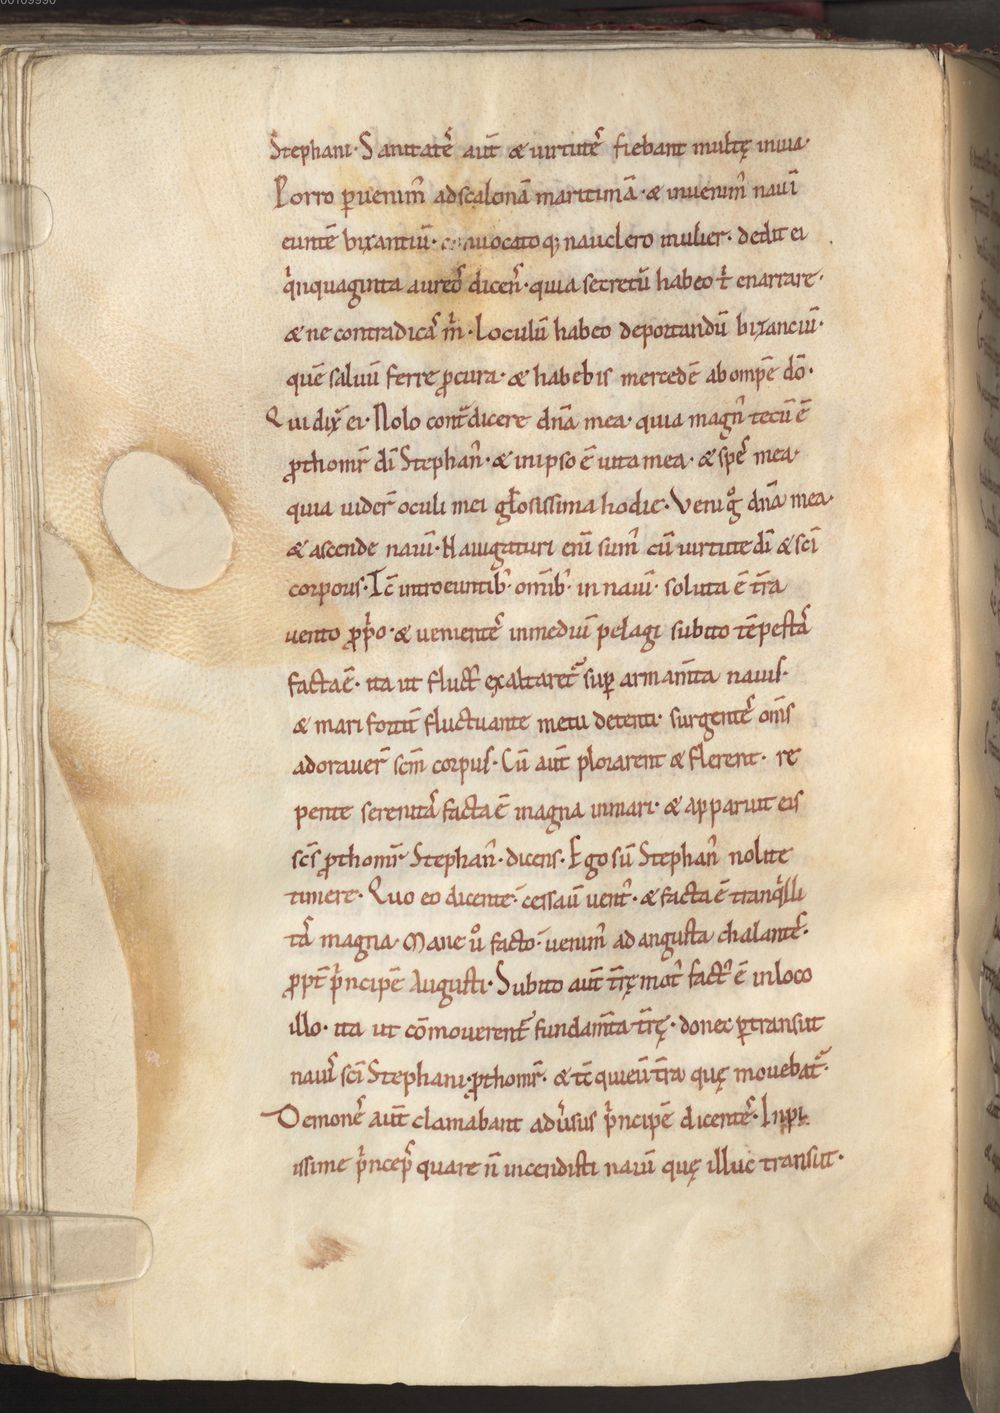 00109990
Stephani· Sanitatē aut̄ & uirtutē fiebant multę inuia·
Porro ꝑuenim̄ adscalonā maritimā· & inuenim̄ nauī
euntē bixantiū· conuocatoq; nauclero mulier· dedit ei
q̍nquaginta aureos̄ dicens̄· quia secretū habeo t̍ enarrare·
& ne contradicas̄ m̍· Loculū habeo deportandū bixanciū·
quē saluū ferre ꝓcura· & habebis mercedē abomp̄e dō·
Qui dix̄ ei· Nolo contᷓdicere dn̄a mea· quia magn̄ tecū ē
ꝓthomr̄ dī Stephan̄· & inipso ē uita mea· & spes̄ mea·
quia uider̄ oculi mei gl̄osissima hodie· Veni gͦ dn̄a mea·
& ascende nauī· Nauigaturi enī sum̄ cū uirtute dī & scī
corporis· Tc̄ introeuntib; omīb; in nauī· soluta ē t̄ra
uento ꝓp̍o· & uenientes̄ inmediū pelagi subito tēpestas̄
facta ē· ita ut fluct̄ exaltaret᷑ suꝑ armam̄ta nauis·
& mari fortit̄ fluctuante metu detenti· surgentes̄ om̄s
adorauer̄ scm̄ corpus· Cū aut̄ plorarent & flerent· re
pente serenitas̄ facta ē magna inmari· & apparuit eis
scs̄ ꝓthomr̄ Stephan̄· dicens· Ego sū Stephan̄ nolite
timere· Quo eo dicente· cessaū uent̄· & facta ē tranq̍lli
tas̄ magna· Mane uͦ facto· uenim̄ ad angusta chalantes̄·
ꝓpt̄ p̍ncipē Augusti· Subito aut̄ t̄rę mot̄ fact̄ ē inloco
illo· ita ut cōmouerent᷑ fundam̄ta t̄rę· donec ꝑtransiit
nauis̄ scī Stephani ꝓthomr̄· & tc̄ quieū t̄ra quę mouebat᷑·
Demones̄ aut̄ clamabant adu̍sus p̍ncipē dicentes̄· Inpi
issime p̍nceps̄ quare n̄ incendisti nauī quę illuc transiit·